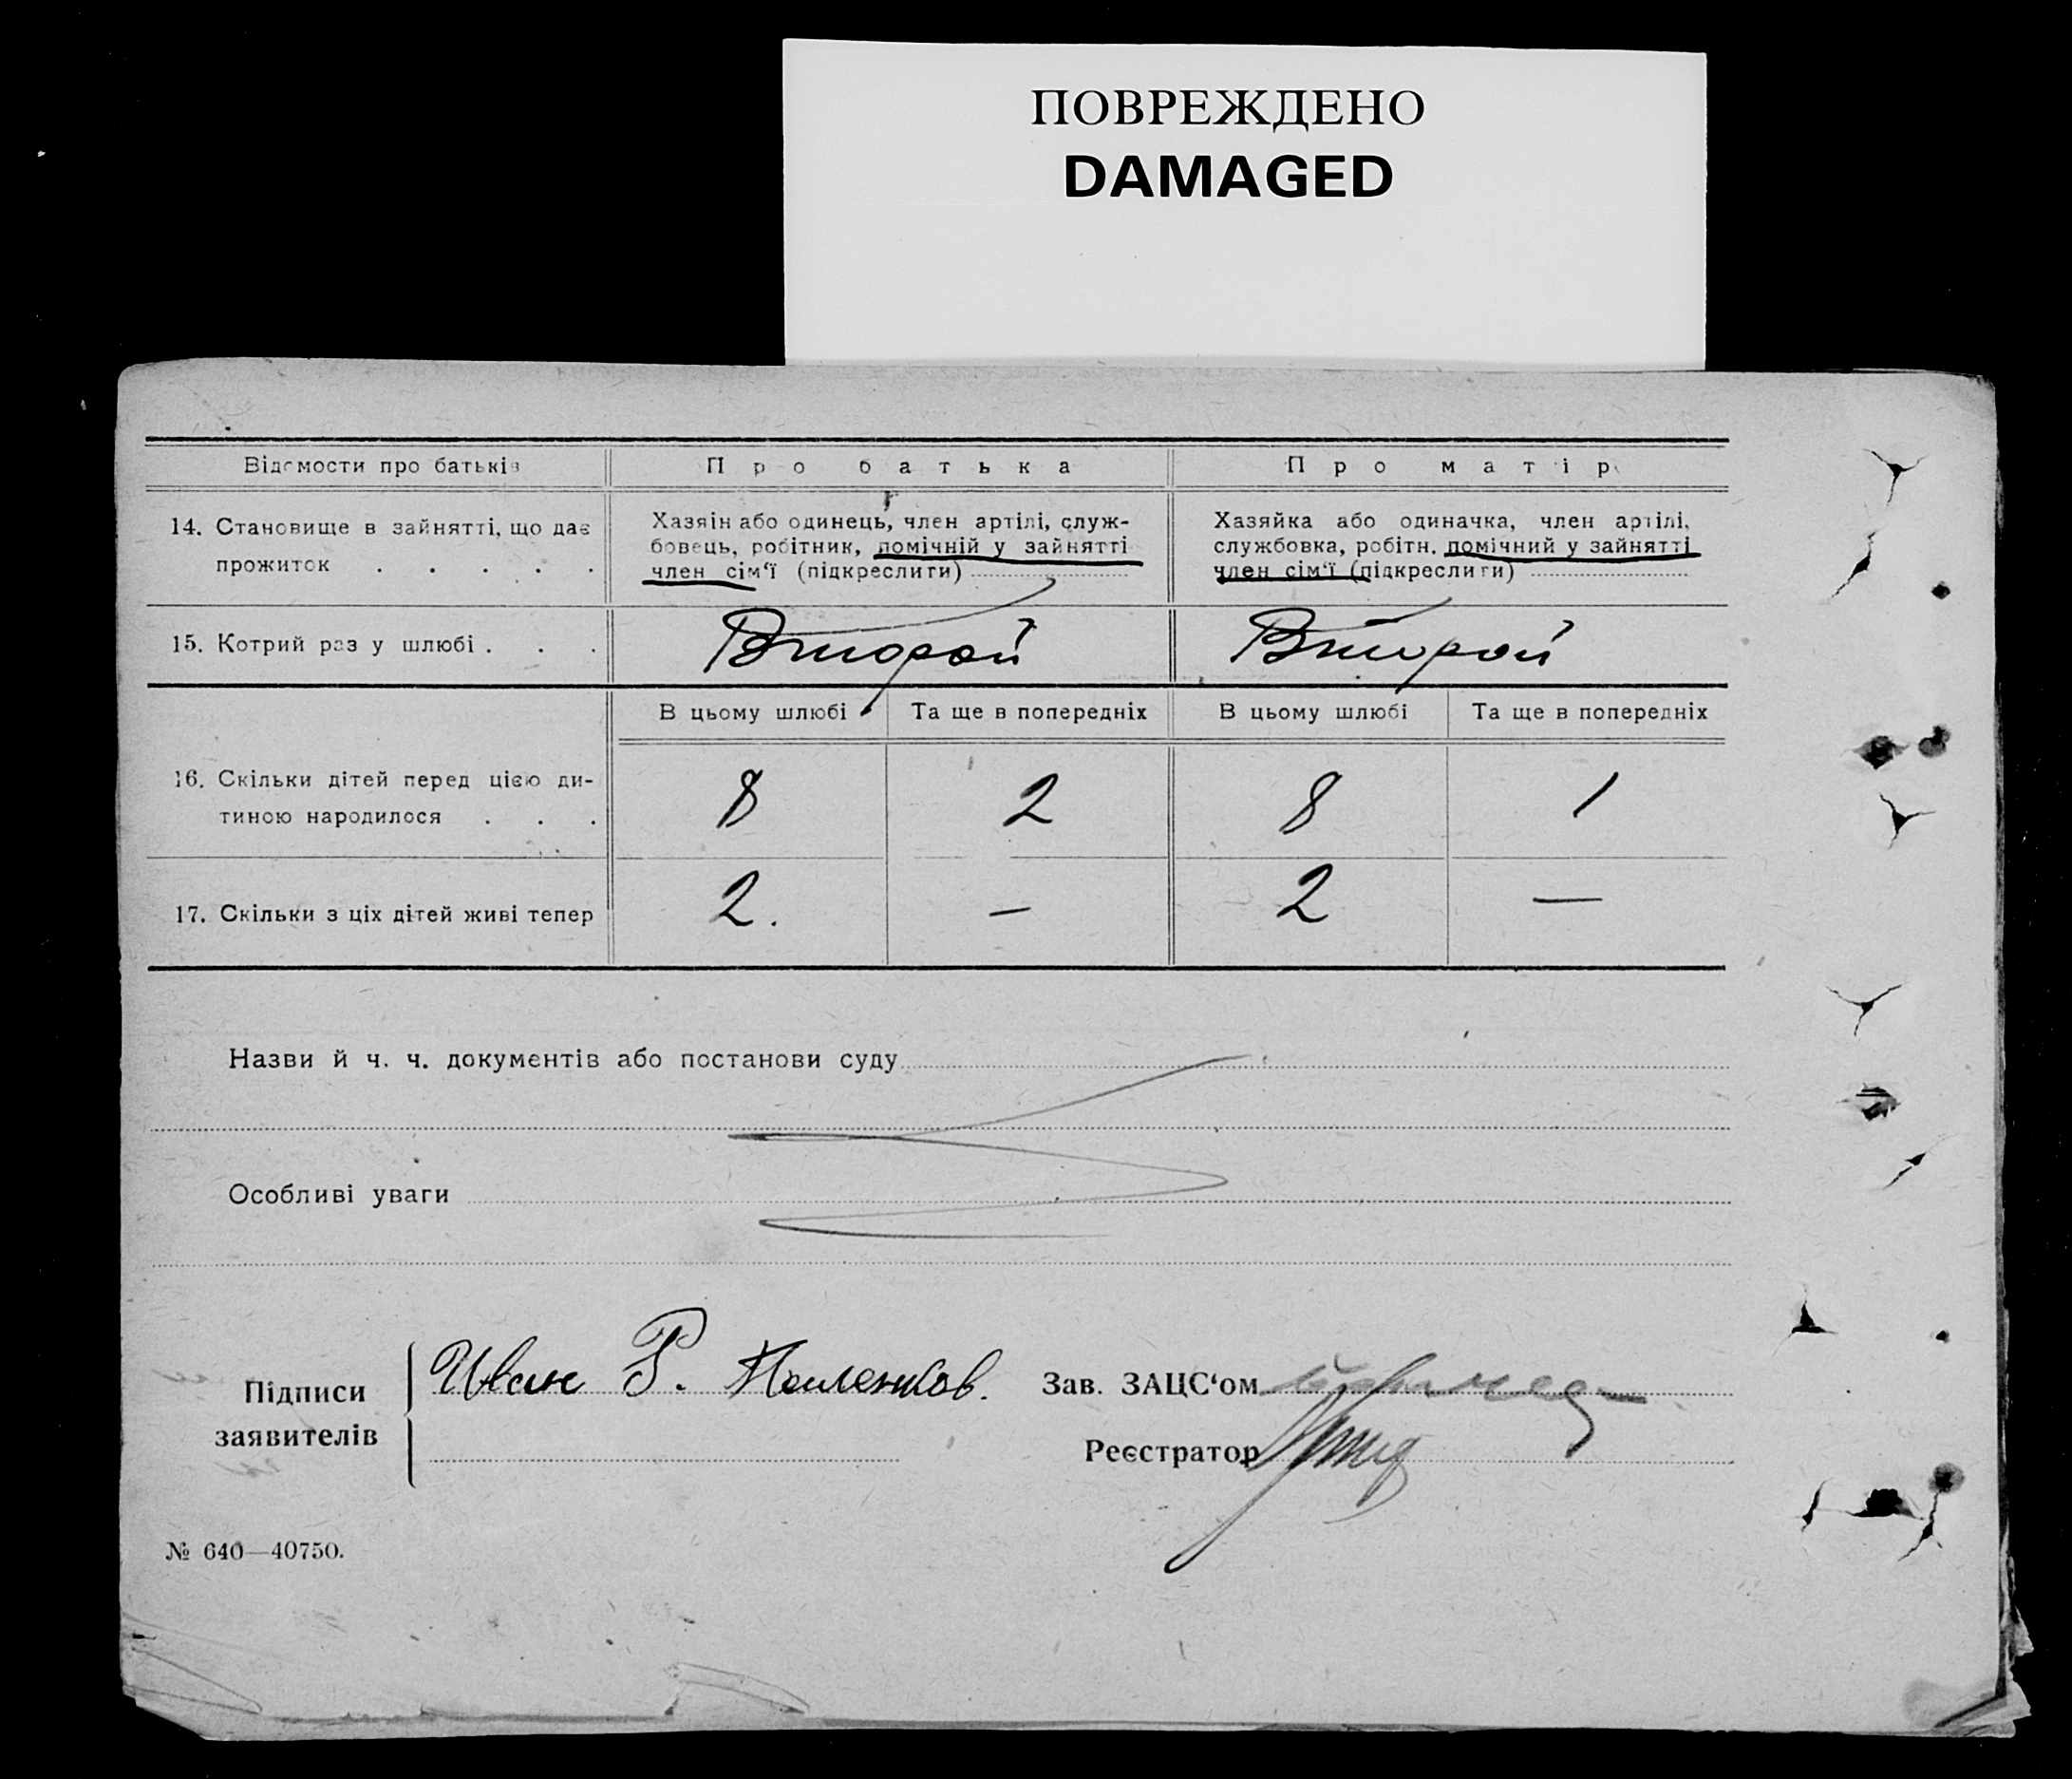 ПОВРЕЖДЕНО
DAMAGED
Відомости про батьків
Про батька
Про матір
14. Становище в зайнятті, що дає
прожиток . . . . .
Хазяїн або одинець, член артілі, служ-
бовець, робітник, помічній у зайнятті
член сім'ї (підкреслити)
Хазяйка або одиначка, член артілі,
службовка, робітн. помічний у зайнятті
член сім'ї (підкреслити)
15. Котрий раз у шлюбі . . .
Второй
Второй
В цьому шлюбі
Та ще в попередніх
В цьому шлюбі
Та ще в попередніх
16. Скільки дітей перед цією ди-
тиною народилося . . .
8
2
8
1
17. Скільки з ціх дітей живі тепер
2.
—
2
—
Назви й ч. ч. документів або постанови суду
Особливі уваги
Підписи
заявителів
Иван Р.
Зав. ЗАЦС'ом
Реєстратор
№ 640—40750.